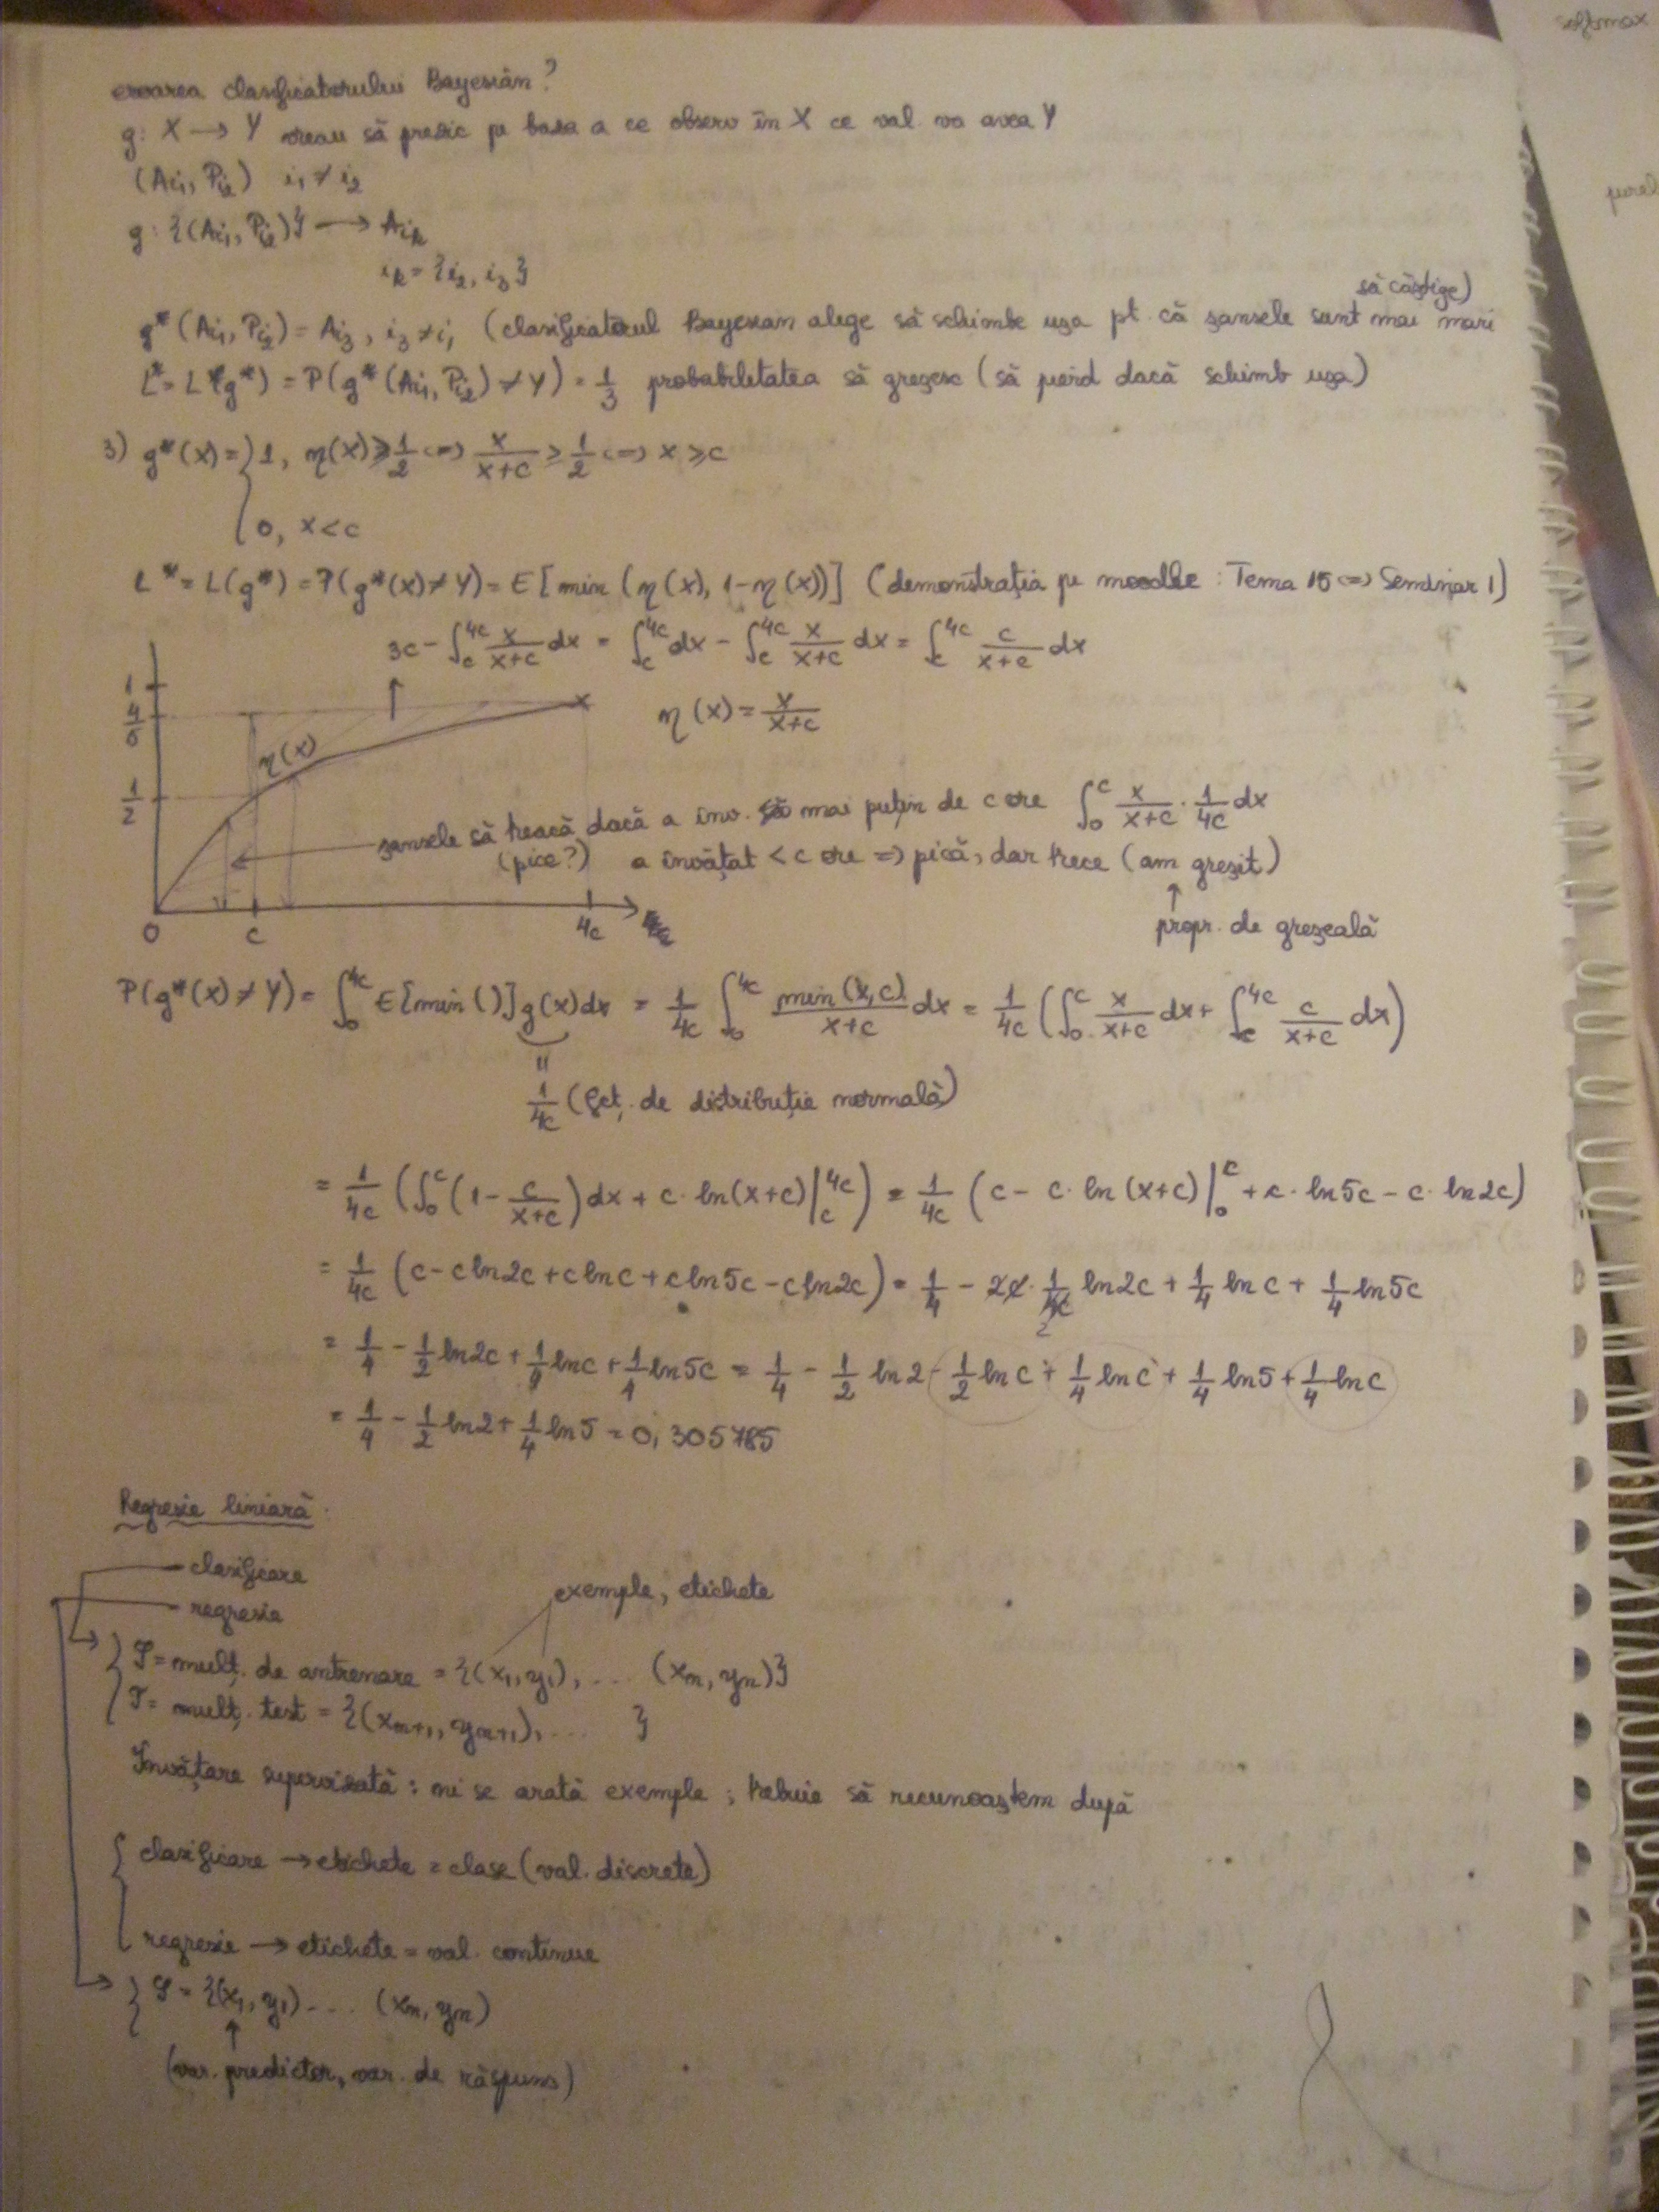 softmax
eroarea clasificatorului Bayesian?
g: X → Y vreau să prezic pe baza a ce observ în X ce val. va avea Y
(Ai₁, Pi₂) i₁ ≠ i₂
g: {(Ai₁, Pi₂)} → Ai_k
i_k = {i₂, i₃}
să câștige)
g*(Ai₁, Pi₂) = Ai₃, i₃ ≠ i₁ (clasificatorul Bayesian alege să schimbe ușa pt. că șansele sunt mai mari
L* = L(g*) = P(g*(Ai₁, Pi₂) ≠ Y) = 1/3 probabilitatea să greșesc (să pierd dacă schimb ușa)
3) g*(x) = { 1, η(x) ≥ 1/2 <=> x/(x+c) ≥ 1/2 <=> x ≥ c
0, x < c
L* = L(g*) = P(g*(x) ≠ Y) = E[min(η(x), 1-η(x))] (demonstrația pe moodle: Tema 15 <=> Seminar 1)
3c - ∫_c^4c x/(x+c) dx = ∫_c^4c dx - ∫_c^4c x/(x+c) dx = ∫_c^4c c/(x+c) dx
1
4/5
1/2
η(x)
η(x) = x/(x+c)
șansele să treacă dacă a înv. mai puțin de c ore ∫_0^c x/(x+c) · 1/4c dx
(pice?) a învățat < c ore => pică, dar trece (am greșit)
↑
propr. de greșeală
0 c 4c
P(g*(x) ≠ Y) = ∫_0^4c E[min()] g(x) dx = 1/4c ∫_0^4c min(x,c)/(x+c) dx = 1/4c (∫_0^c x/(x+c) dx + ∫_c^4c c/(x+c) dx)
1/4c (fct. de distribuție normală)
= 1/4c (∫_0^c (1 - c/(x+c)) dx + c·ln(x+c)|_c^4c) = 1/4c (c - c·ln(x+c)|_0^c + c·ln5c - c·ln2c)
= 1/4c (c - cln2c + clnc + cln5c - cln2c) = 1/4 - 2c·1/4c ln2c + 1/4 lnc + 1/4 ln5c
= 1/4 - 1/2 ln2c + 1/4 lnc + 1/4 ln5c = 1/4 - 1/2 ln2 - 1/2 lnc + 1/4 lnc + 1/4 ln5 + 1/4 lnc
= 1/4 - 1/2 ln2 + 1/4 ln5 = 0,305785
Regresie liniară:
clasificare
regresie
exemple, etichete
S = mulț. de antrenare = {(x₁, y₁), ... (xₙ, yₙ)}
T = mulț. test = {(xₙ₊₁, yₙ₊₁), ... }
Învățare supervizată: ni se arată exemple; trebuie să recunoaștem după
clasificare → etichete = clase (val. discrete)
regresie → etichete = val. continue
S = {(x₁, y₁) ... (xₙ, yₙ)
↑
(var. predictor, var. de răspuns)